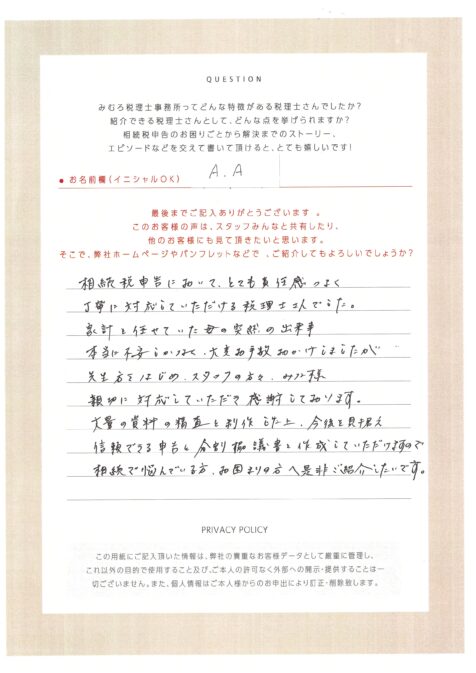 QUESTION
みむろ税理士事務所ってどんな特徴がある税理士さんでしたか？
紹介できる税理士さんとして、どんな点を挙げられますか？
相続税申告のお困りごとから解決までのストーリー、
エピソードなどを交えて書いて頂けると、とても嬉しいです！
● お名前欄（イニシャルOK）
A.A
最後までご記入ありがとうございます 。
このお客様の声は、スタッフみんなと共有したり、
他のお客様にも見て頂きたいと思います。
そこで、弊社ホームページやパンフレットなどで 、ご紹介してもよろしいでしょうか？
相続税申告において、とても責任感つよく
丁寧に対応していただける税理士さんでした。
家計を任せていた母の突然の出来事
本当に不安しかなく、大変お手数おかけしましたが
先生方をはじめ、スタッフの方々、みな様
親切に対応していただき感謝しております。
大量の資料の精査を制作した上、今後を見据え
信頼できる申告と分割協議書を作成していただけますので
相続で悩んでいる方、お困りの方へ是非ご紹介したいです。
PRIVACY POLICY
この用紙にご記入頂いた情報は、弊社の貴重なお客様データとして厳重に管理し、
これ以外の目的で使用すること及び、ご本人の許可なく外部への開示・提供することは一
切ございません。また、個人情報はご本人様からのお申出により訂正・削除致します。